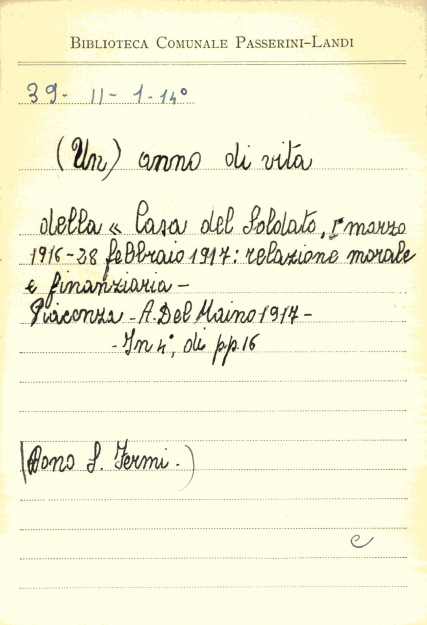 BIBLIOTECA COMUNALE PASSERINI-LANDI
39- II- 1-14°
(Un) anno di vita
della « Casa del Soldato, I° marzo
1916-28 febbraio 1917: relazione morale
e finanziaria -
Piaconza - A. Del Maino 1917 -
- In 4°, di pp. 16
(Dono S. Fermi.)
e